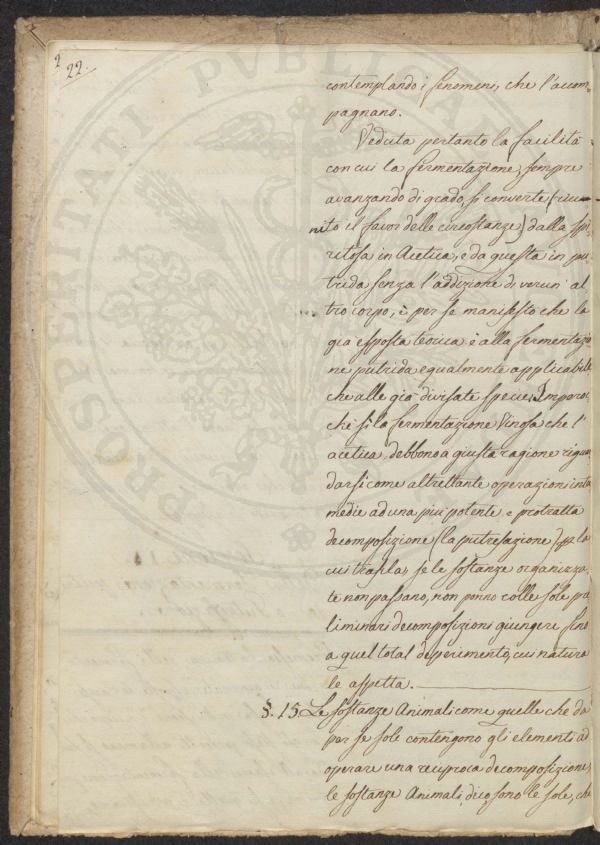 2
22.
contemplando i fenomeni, che l'accom=
pagnano.
Veduta pertanto la facilità
con cui la fermentazione, sempre
avanzando di grado, si converte (riu=
nito il favor delle circostanze) dalla spi=
ritosa in Acetica, e da questa in pu=
trida senza l'addizione di verun al
tro corpo, è per se manifesto che la
già esposta teorica è alla fermentazio
ne putrida egualmente applicabile
che alle già divisate specie. Imperoc=
chè sì la fermentazione Vinosa che l'
acetica debbono a giusta ragione riguar
darsi come altrettante operazioni inter
medie ad una più potente e protratta
decomposizione (la putrefazione) per la
cui trafila, se le sostanze organizza=
te non passano, non ponno colle sole pre
liminari decomposizioni giungere fino
a quel total deperimento, cui natura
le aspetta.
§. 15. Le sostanze Animali come quelle che da
per se sole contengono gli elementi ad
operare una reciproca decomposizione,
le sostanze Animali, dico, sono le sole, che
PROSPERITATI PUBLICAE